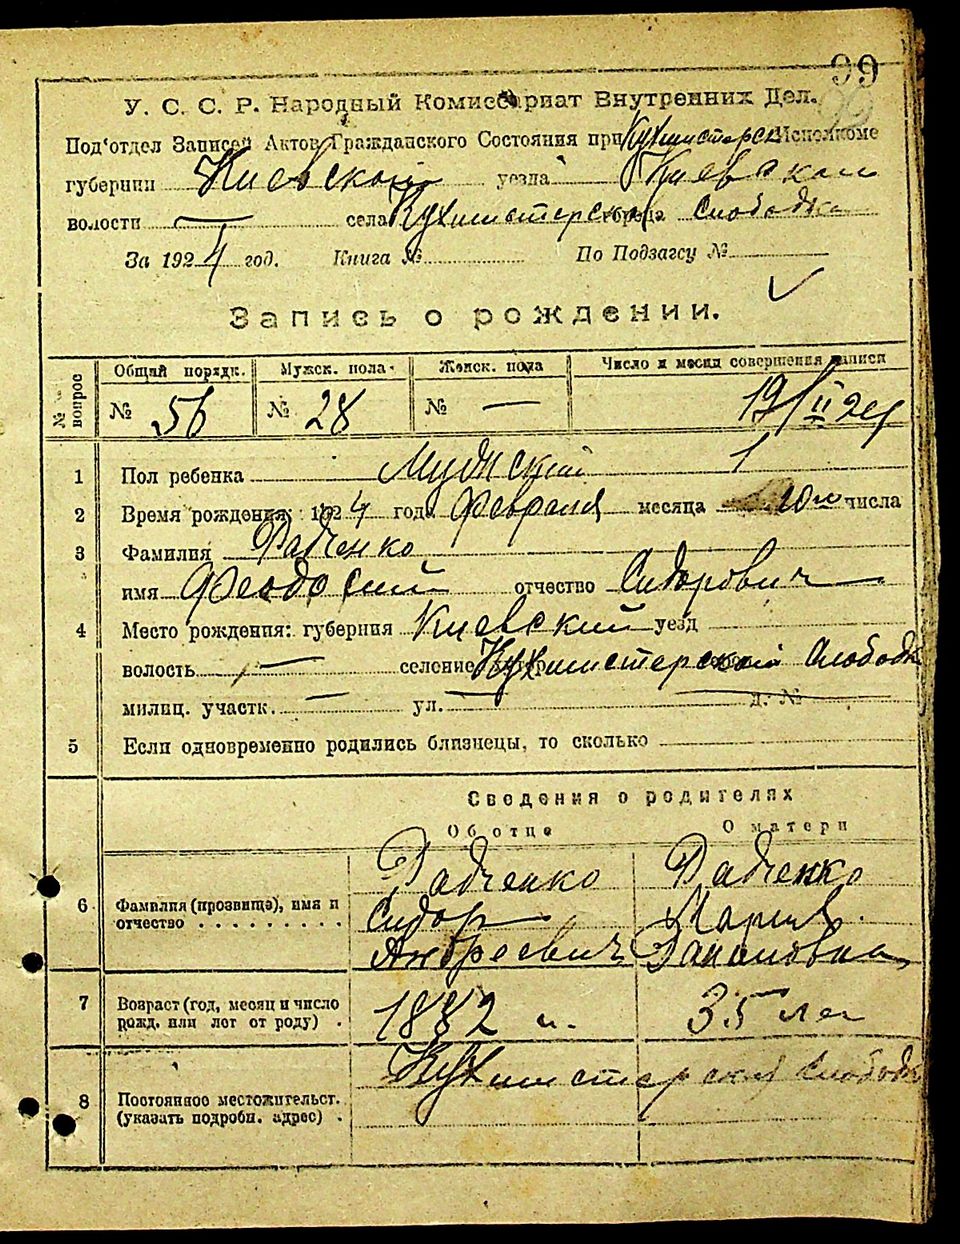 99
У. С. С. Р. Народный Комиссариат Внутренних Дел.
Под'отдел Записей Актов Гражданского Состояния при Кухмистерск Исполкоме
губернии Киевской уезда Киевской
волости — села Кухмистерской города Слободка
За 1924 год. Книга № По Подзагсу №
Запись о рождении.
№ вопрос
Общий порядк. Мужск. пола Женск. пола Число и месяц совершения записи
№ 56 № 28 № — 19/II 24
1 Пол ребенка Мужской
2 Время рождения: 1924 года Февраля месяца 10го числа
3 Фамилия Радченко
имя Феодосий отчество Сидорович
4 Место рождения: губерния Киевский уезд
волость — селение Кухмистерской Слободк
милиц. участк. — ул. — д. №
5 Если одновременно родились близнецы, то сколько
Сведения о родителях
Об отце О матери
6 Фамилия (прозвище), имя и отчество
Радченко Радченко
Сидор Мария
Андреевич
7 Возраст (год, месяц и число рожд. или лет от роду)
1882 35 лет
8 Постоянное местожительст. (указать подробн. адрес)
Кухмистерской Слободк